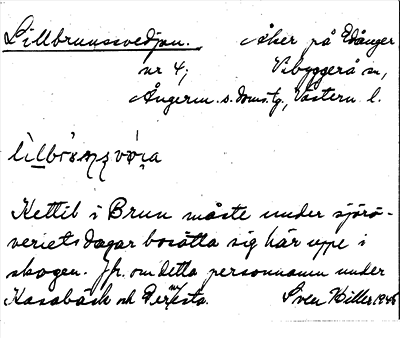 Lillbrunssvedjan. Åker på Edånger
nr 4; Vibyggerå sn,
Ångerm. s. doms.tg., Västern. l.
Kettil i Brun måste under sjörö-
veriets dagar bosätta sig här uppe i
skogen. Jfr. om detta personnamn under
Kasabäck och
Sven Hiller 1946